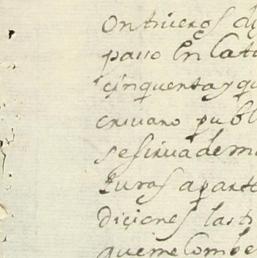 Ontiveros d
paso En la ci
cinquenta y qu
crivano publ
se sirva de m
Juros aparte
diciones las t
que me combe